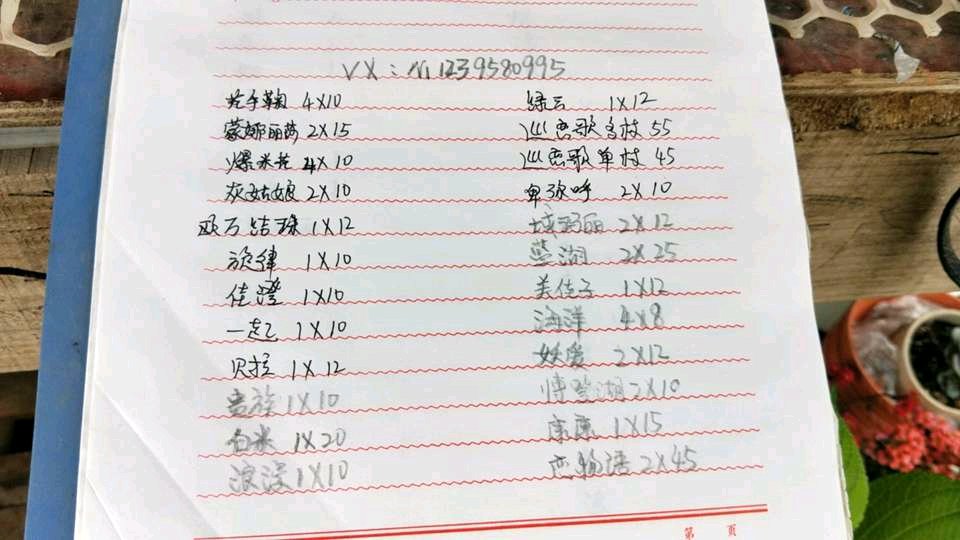 VX: M1239580995
老手鞠 4X10
蒙娜丽莎 2X15
爆米花 4X10
灰姑娘 2X10
欧万结珠 1X12
旋律 1X10
佳澄 1X10
一起 1X10
贝拉 1X12
贵族 1X10
白米 1X20
浪漫 1X10
绿云 1X12
巡恋歌多枝 55
巡恋歌单枝 45
卑弥呼 2X10
玛丽 2X12
蓝湖 2X25
美佳子 1X12
海洋 4X8
妖爱 2X12
博登湖 2X10
康康 1X15
恋物语 2X45
第 页